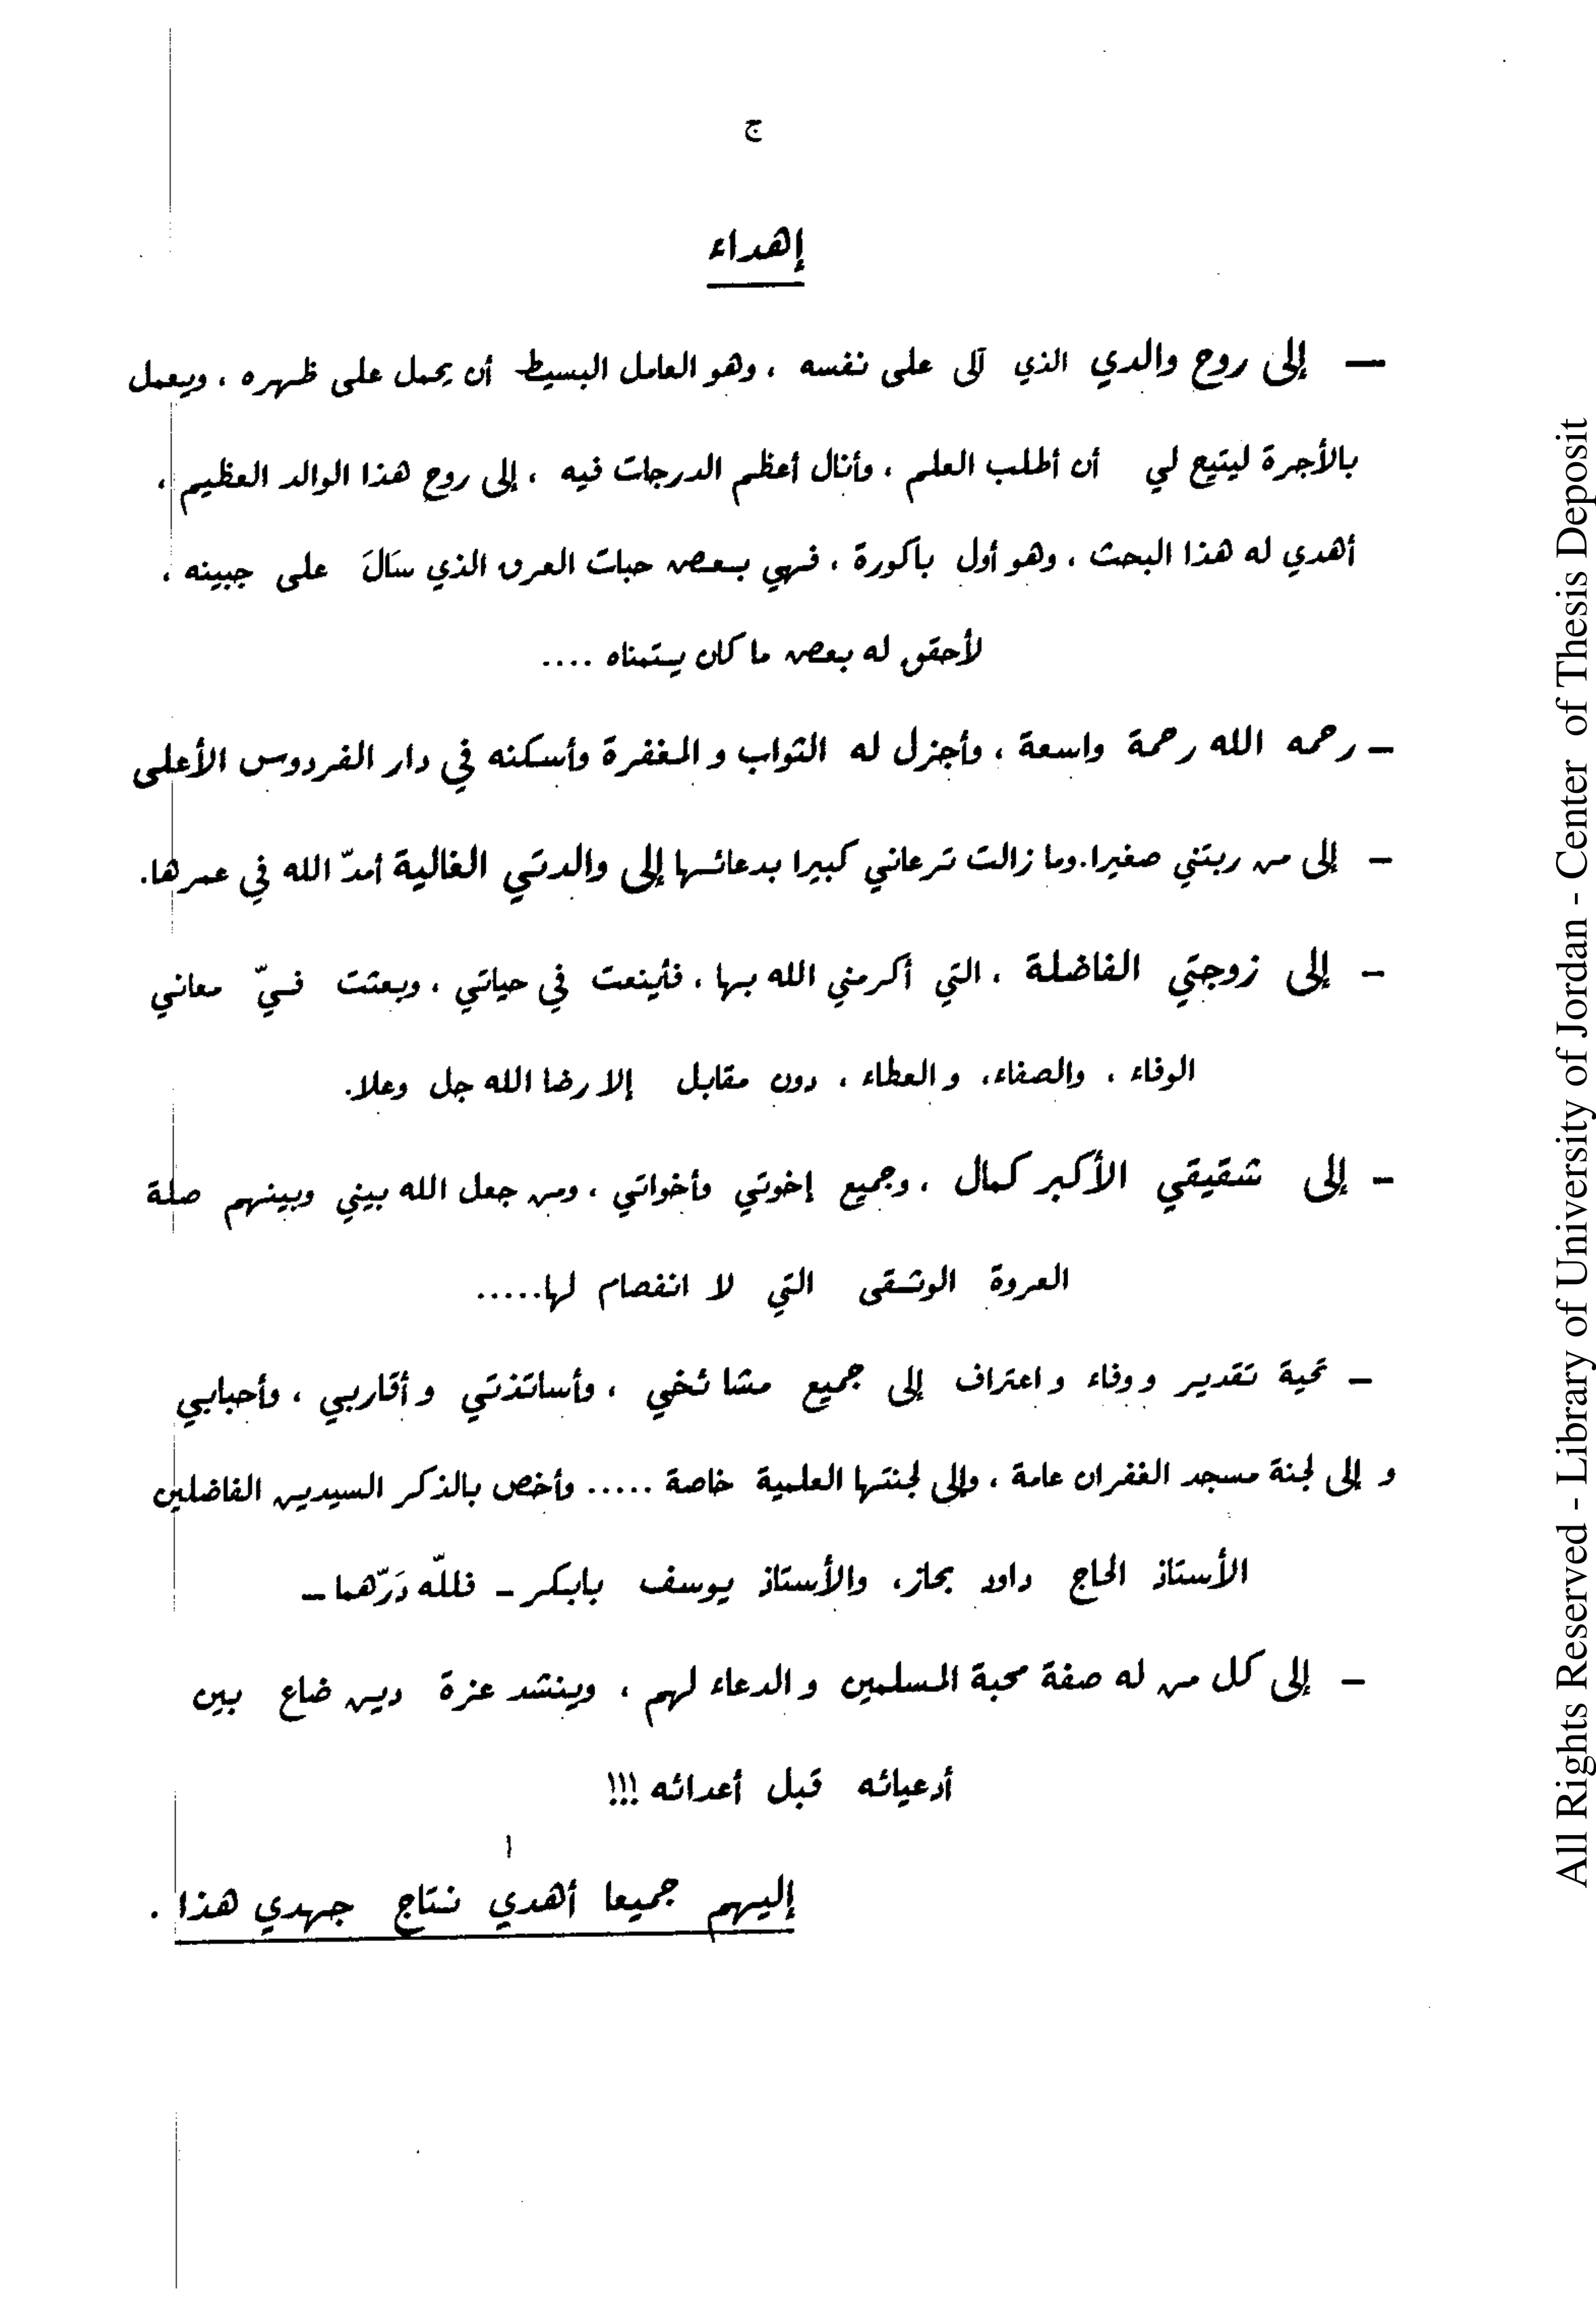 ج
إهداء
— إلى روح والدي الذي آلى على نفسه ، وهو العامل البسيط أن يحمل على ظهره ، ويعمل
بالأجرة ليتيح لي أن أطلب العلم ، وأنال أعظم الدرجات فيه ، إلى روح هذا الوالد العظيم ،
أهدي له هذا البحث ، وهو أول باكورة ، فهي بعض حبات العرق الذي سَالَ على جبينه ،
لأحقق له بعض ما كان يستمناه ....
- رحمه الله رحمة واسعة ، وأجزل له الثواب و المغفرة وأسكنه في دار الفردوس الأعلى
- إلى من ربتني صغيرا.وما زالت ترعاني كبيرا بدعائها إلى والدتي الغالية أمدّ الله في عمرها.
- إلى زوجتي الفاضلة ، التي أكرمني الله بها ، فأينعت في حياتي ، وبعثت فيّ معاني
الوفاء ، والصفاء، و العطاء ، دون مقابل إلا رضا الله جل وعلا.
- إلى شقيقي الأكبر كمال ، وجميع إخوتي وأخواتي ، ومن جعل الله بيني وبينهم صلة
العروة الوثقى التي لا انفصام لها.....
- تحية تقدير و وفاء و اعتراف إلى جميع مشائخي ، وأساتذتي و أقاربي ، وأحبابي
و إلى لجنة مسجد الغفران عامة ، وإلى لجنتها العلمية خاصة ..... وأخص بالذكر السيدين الفاضلين
الأستاذ الحاج داود بحاز، والأستاذ يوسف بابكر - فللّه دَرّهما -
- إلى كل من له صفة محبة المسلمين و الدعاء لهم ، وينشد عزة دين ضاع بين
أدعيائه قبل أعدائه !!!
إليهم جميعا أهدي نتاج جهدي هذا .
All Rights Reserved - Library of University of Jordan - Center of Thesis Deposit